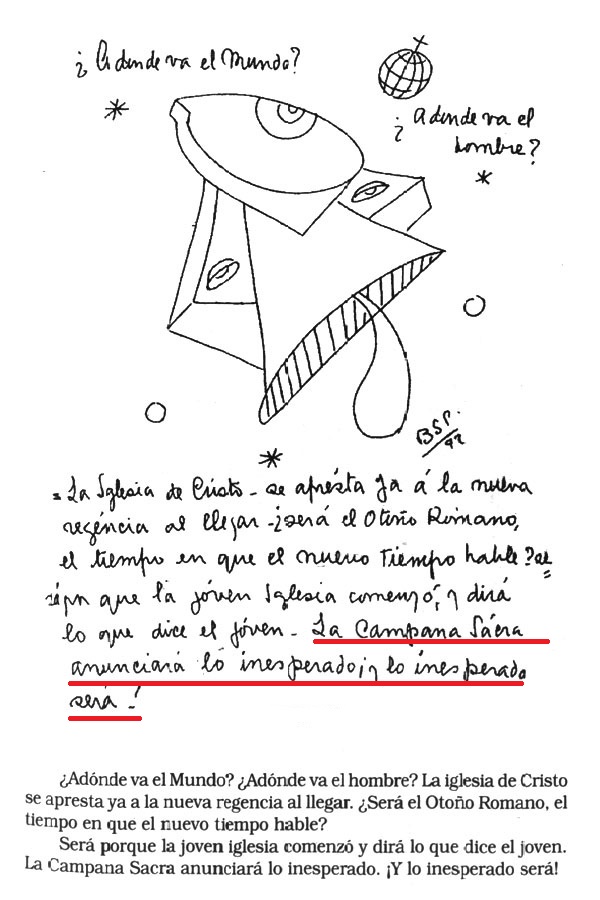 ¿Adonde va el Mundo?
¿Adonde va el
hombre?
BSP.
92
"La Iglesia de Cristo - se apresta ya á la nueva
regéncia al llegar - ¿será el Otoño Romano,
el tiempo en que el nuevo Tiempo hable? se
que la jóven Iglesia comenzó, y dirá
lo que dice el jóven - La Campana Sácra
anunciará lo inesperado; y lo inesperado
será -!
¿Adónde va el Mundo? ¿Adónde va el hombre? La iglesia de Cristo
se apresta ya a la nueva regencia al llegar. ¿Será el Otoño Romano, el
tiempo en que el nuevo tiempo hable?
Será porque la joven iglesia comenzó y dirá lo que dice el joven.
La Campana Sacra anunciará lo inesperado. ¡Y lo inesperado será!